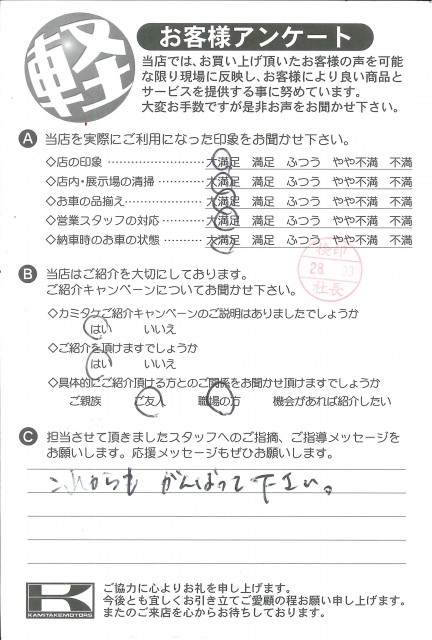 軽
お客様アンケート
当店では、お買い上げ頂いたお客様の声を可能
な限り現場に反映し、お客様により良い商品と
サービスを提供する事に努めています。
大変お手数ですが是非お声をお聞かせ下さい。
A 当店を実際にご利用になった印象をお聞かせ下さい。
◇店の印象 ……………… 大満足 満足 ふつう やや不満 不満
◇店内・展示場の清掃 ……… 大満足 満足 ふつう やや不満 不満
◇お車の品揃え …………… 大満足 満足 ふつう やや不満 不満
◇営業スタッフの対応 ……… 大満足 満足 ふつう やや不満 不満
◇納車時のお車の状態 ……… 大満足 満足 ふつう やや不満 不満
検印
28. 03
社長
B 当店はご紹介を大切にしております。
ご紹介キャンペーンについてお聞かせ下さい。
◇カミタケご紹介キャンペーンのご説明はありましたでしょうか
はい いいえ
◇ご紹介を頂けますでしょうか
はい いいえ
◇具体的にご紹介頂ける方とのご関係をお聞かせ頂けますでしょうか
ご親族 ご友人 職場の方 機会があれば紹介したい
C 担当させて頂きましたスタッフへのご指摘、ご指導メッセージを
お願いします。応援メッセージもぜひお願いします。
これからも がんばって下さい。
K
KAMITAKEMOTORS
ご協力に心よりお礼を申し上げます。
今後とも宜しくお引き立てご愛顧の程お願い申し上げます。
またのご来店を心からお待ちしております。